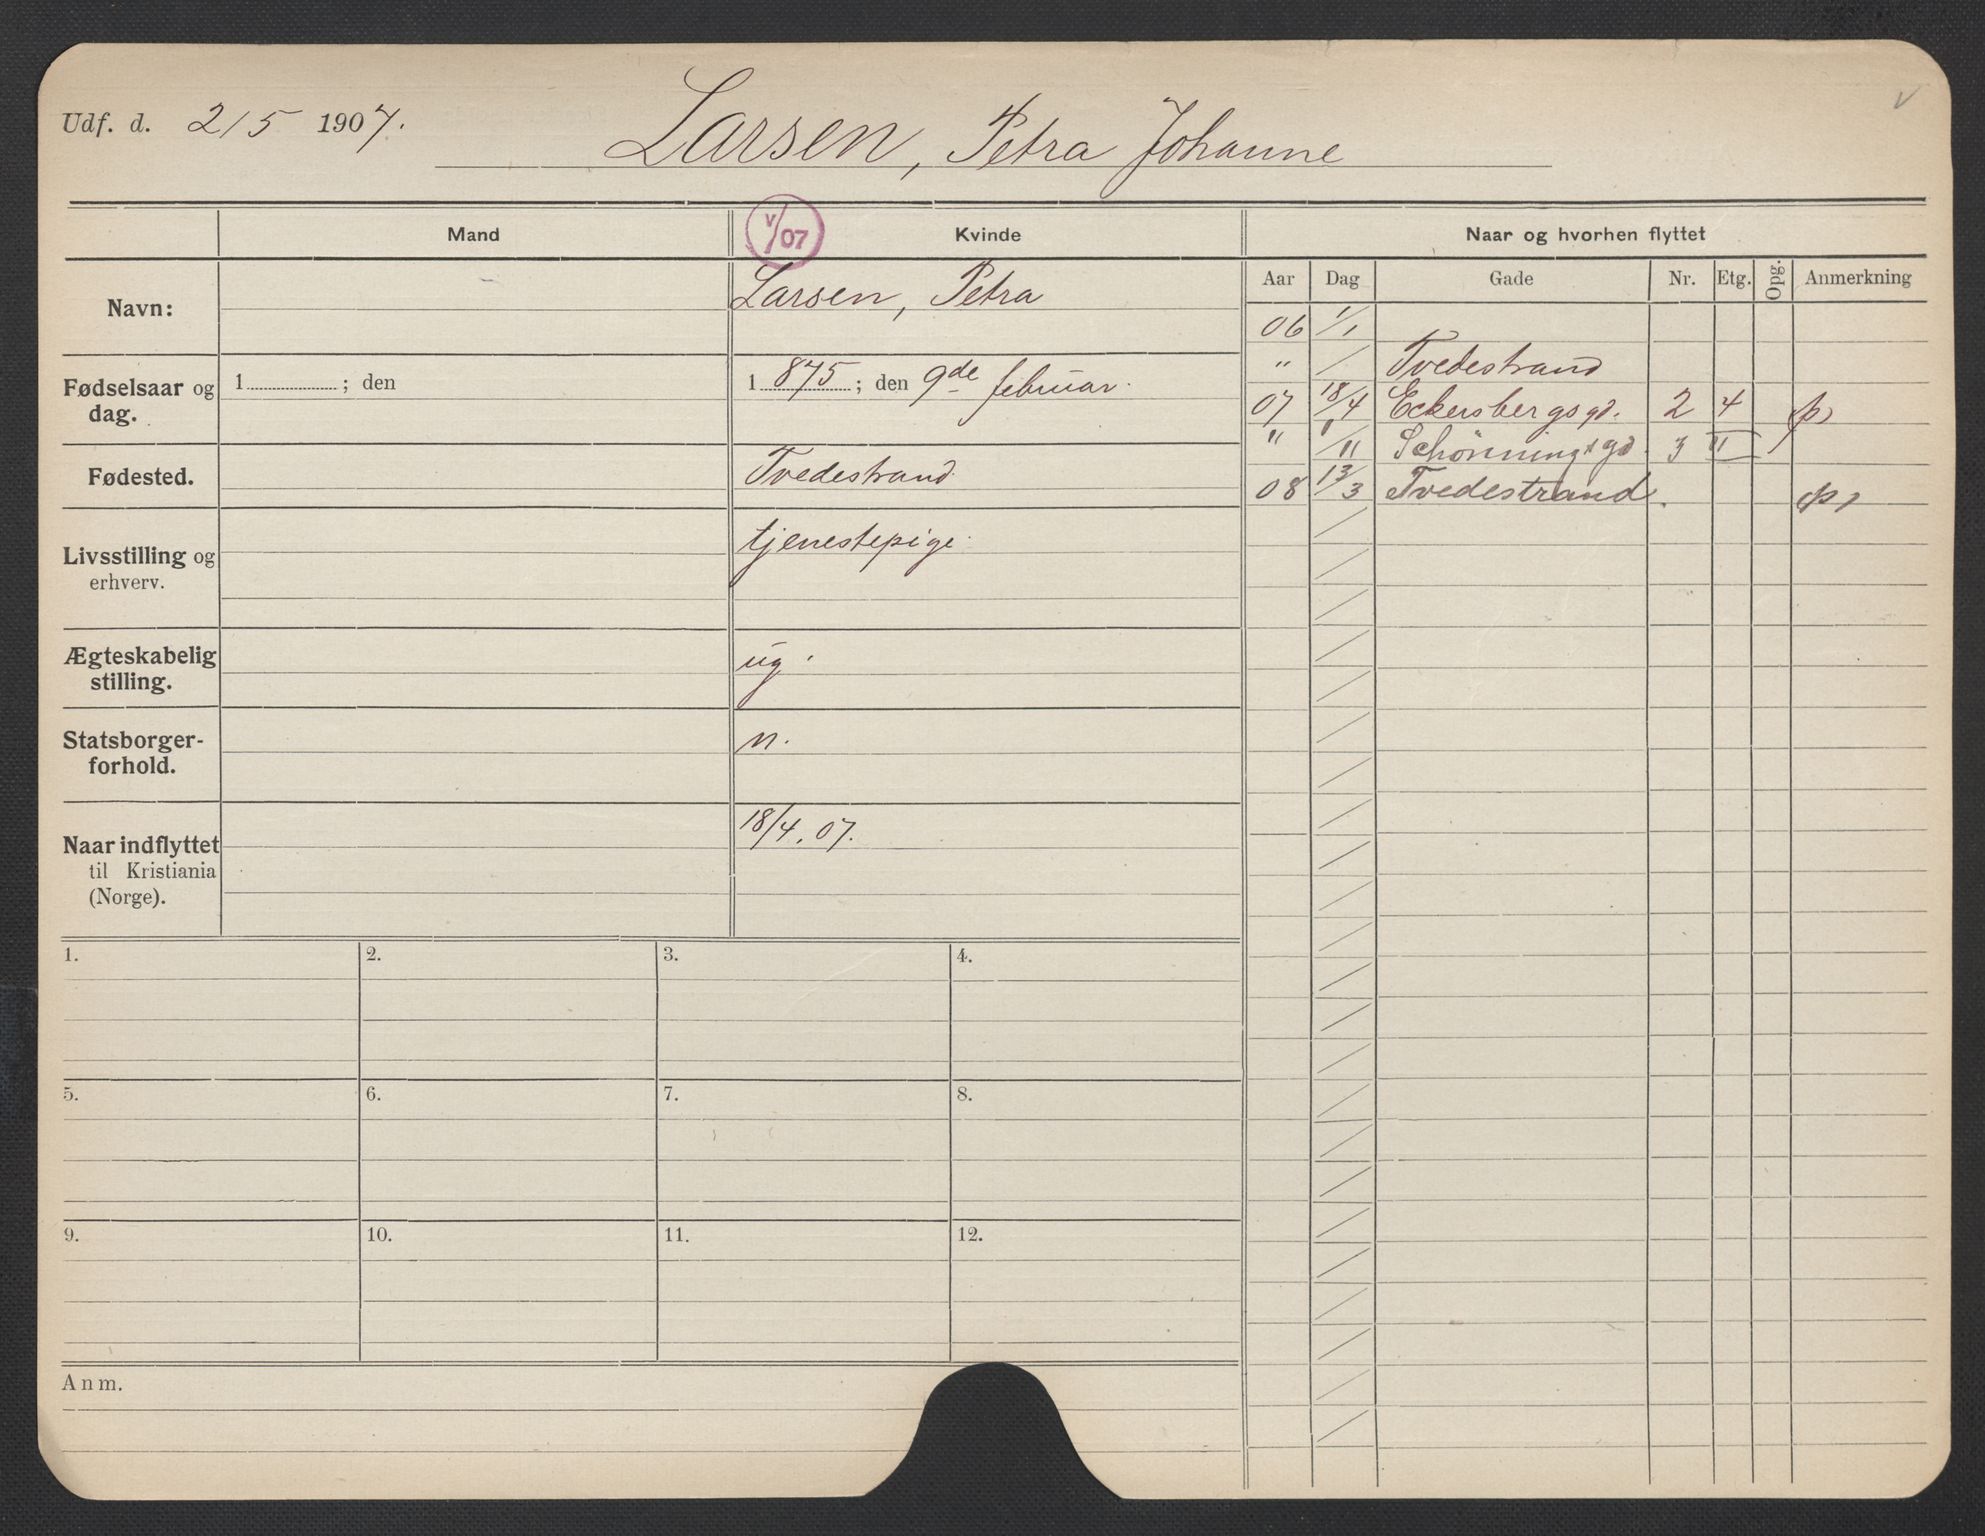 Udf. d. 2/5 1907. Larsen, Petra Johanne
v
Mand V/07 Kvinde Naar og hvorhen flyttet
Aar Dag Gade Nr. Etg. Opg. Anmerkning
Navn: Larsen, Petra
Fødselsaar og dag. 1 ; den 1 875 ; den 9de februar.
Fødested. Tvedestrand
Livsstilling og erhverv. tjenestepige
Ægteskabelig stilling. ug.
Statsborger-forhold. n.
Naar indflyttet til Kristiania (Norge). 18/4. 07.
06 1/1
" / Tvedestrand
07 18/4 Eckersbergsgd. 2 4
" /11 Schönningsgd 3 II
08 13/3 Tvedestrand.
1. 2. 3. 4.
5. 6. 7. 8.
9. 10. 11. 12.
Anm.